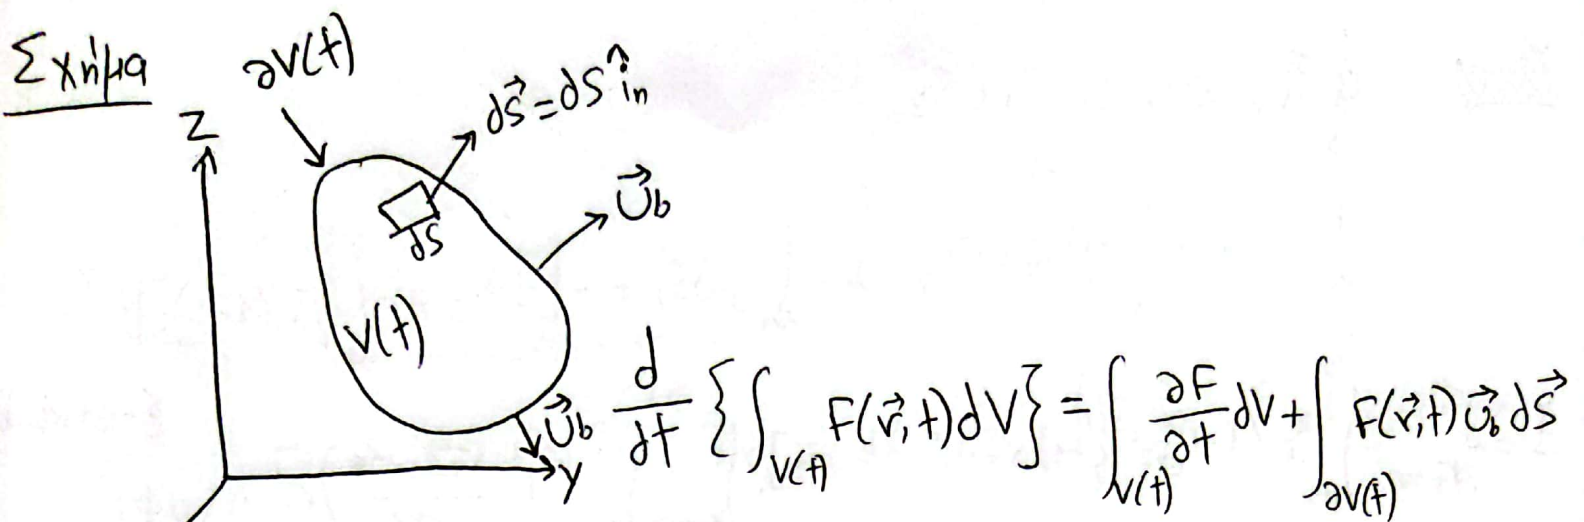 Σχήμα
∂V(t)
dS⃗=dS î_n
Z
U⃗_b
dS
V(t)
U⃗_b
y
d/dt {∫_{V(t)} F(r⃗,t)dV} = ∫_{V(t)} ∂F/∂t dV + ∫_{∂V(t)} F(r⃗,t) U⃗_b dS⃗